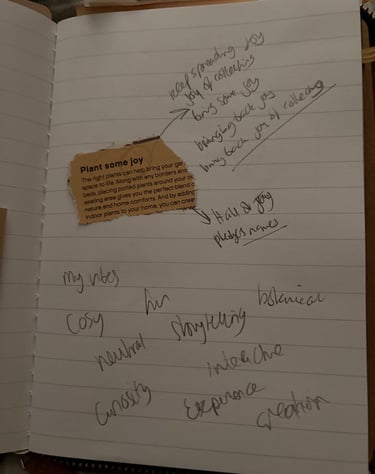 keep spreading joy
joy of collecting
bring some joy
bringing back joy
bring back joy of collecting
Plant some joy
The right plants can help bring your
space to life. Along with any borders and
beds, placing potted plants around your
seating area gives you the perfect blend o
nature and home comforts. And by adding
indoor plants to your home, you can creat
Hall of Joy
pledges names
my vibes
fun
botanical
cosy
storytelling
neutral
interactive
curiosity
experience
creation